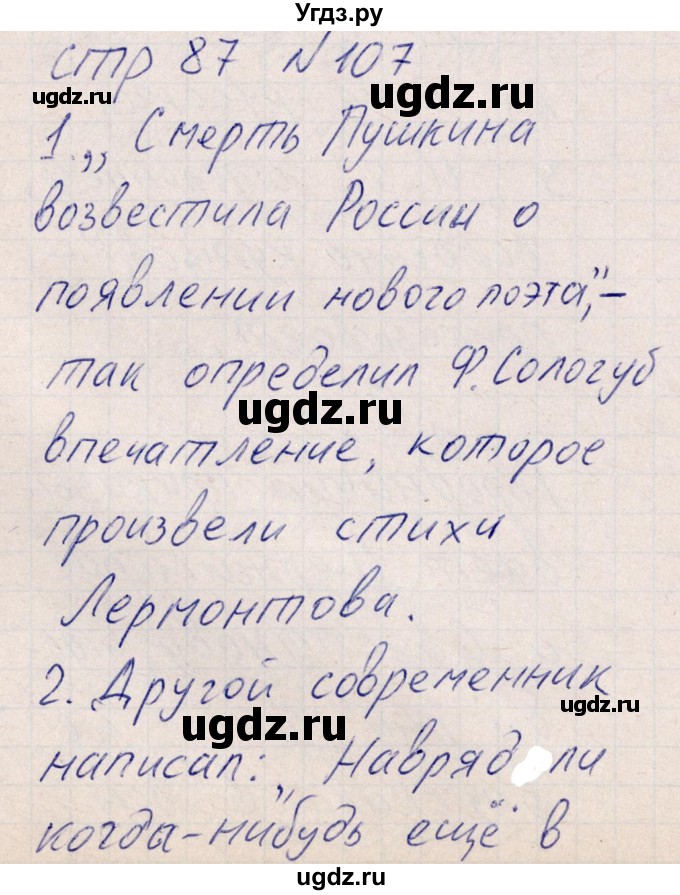 Угдз.ру
стр 87 №107
ugdz.ru
ugdz.ru
1. „Смерть Пушкина
возвестила России о
появлении нового поэта",–
так определил Ф. Сологуб
ugdz.ru
впечатление, которое
произвели стихи
Лермонтова.
2. Другой современник
ugdz.ru
ugdz.ru
написал: „Навряд ли
когда-нибудь ещё в
ugdz.ru